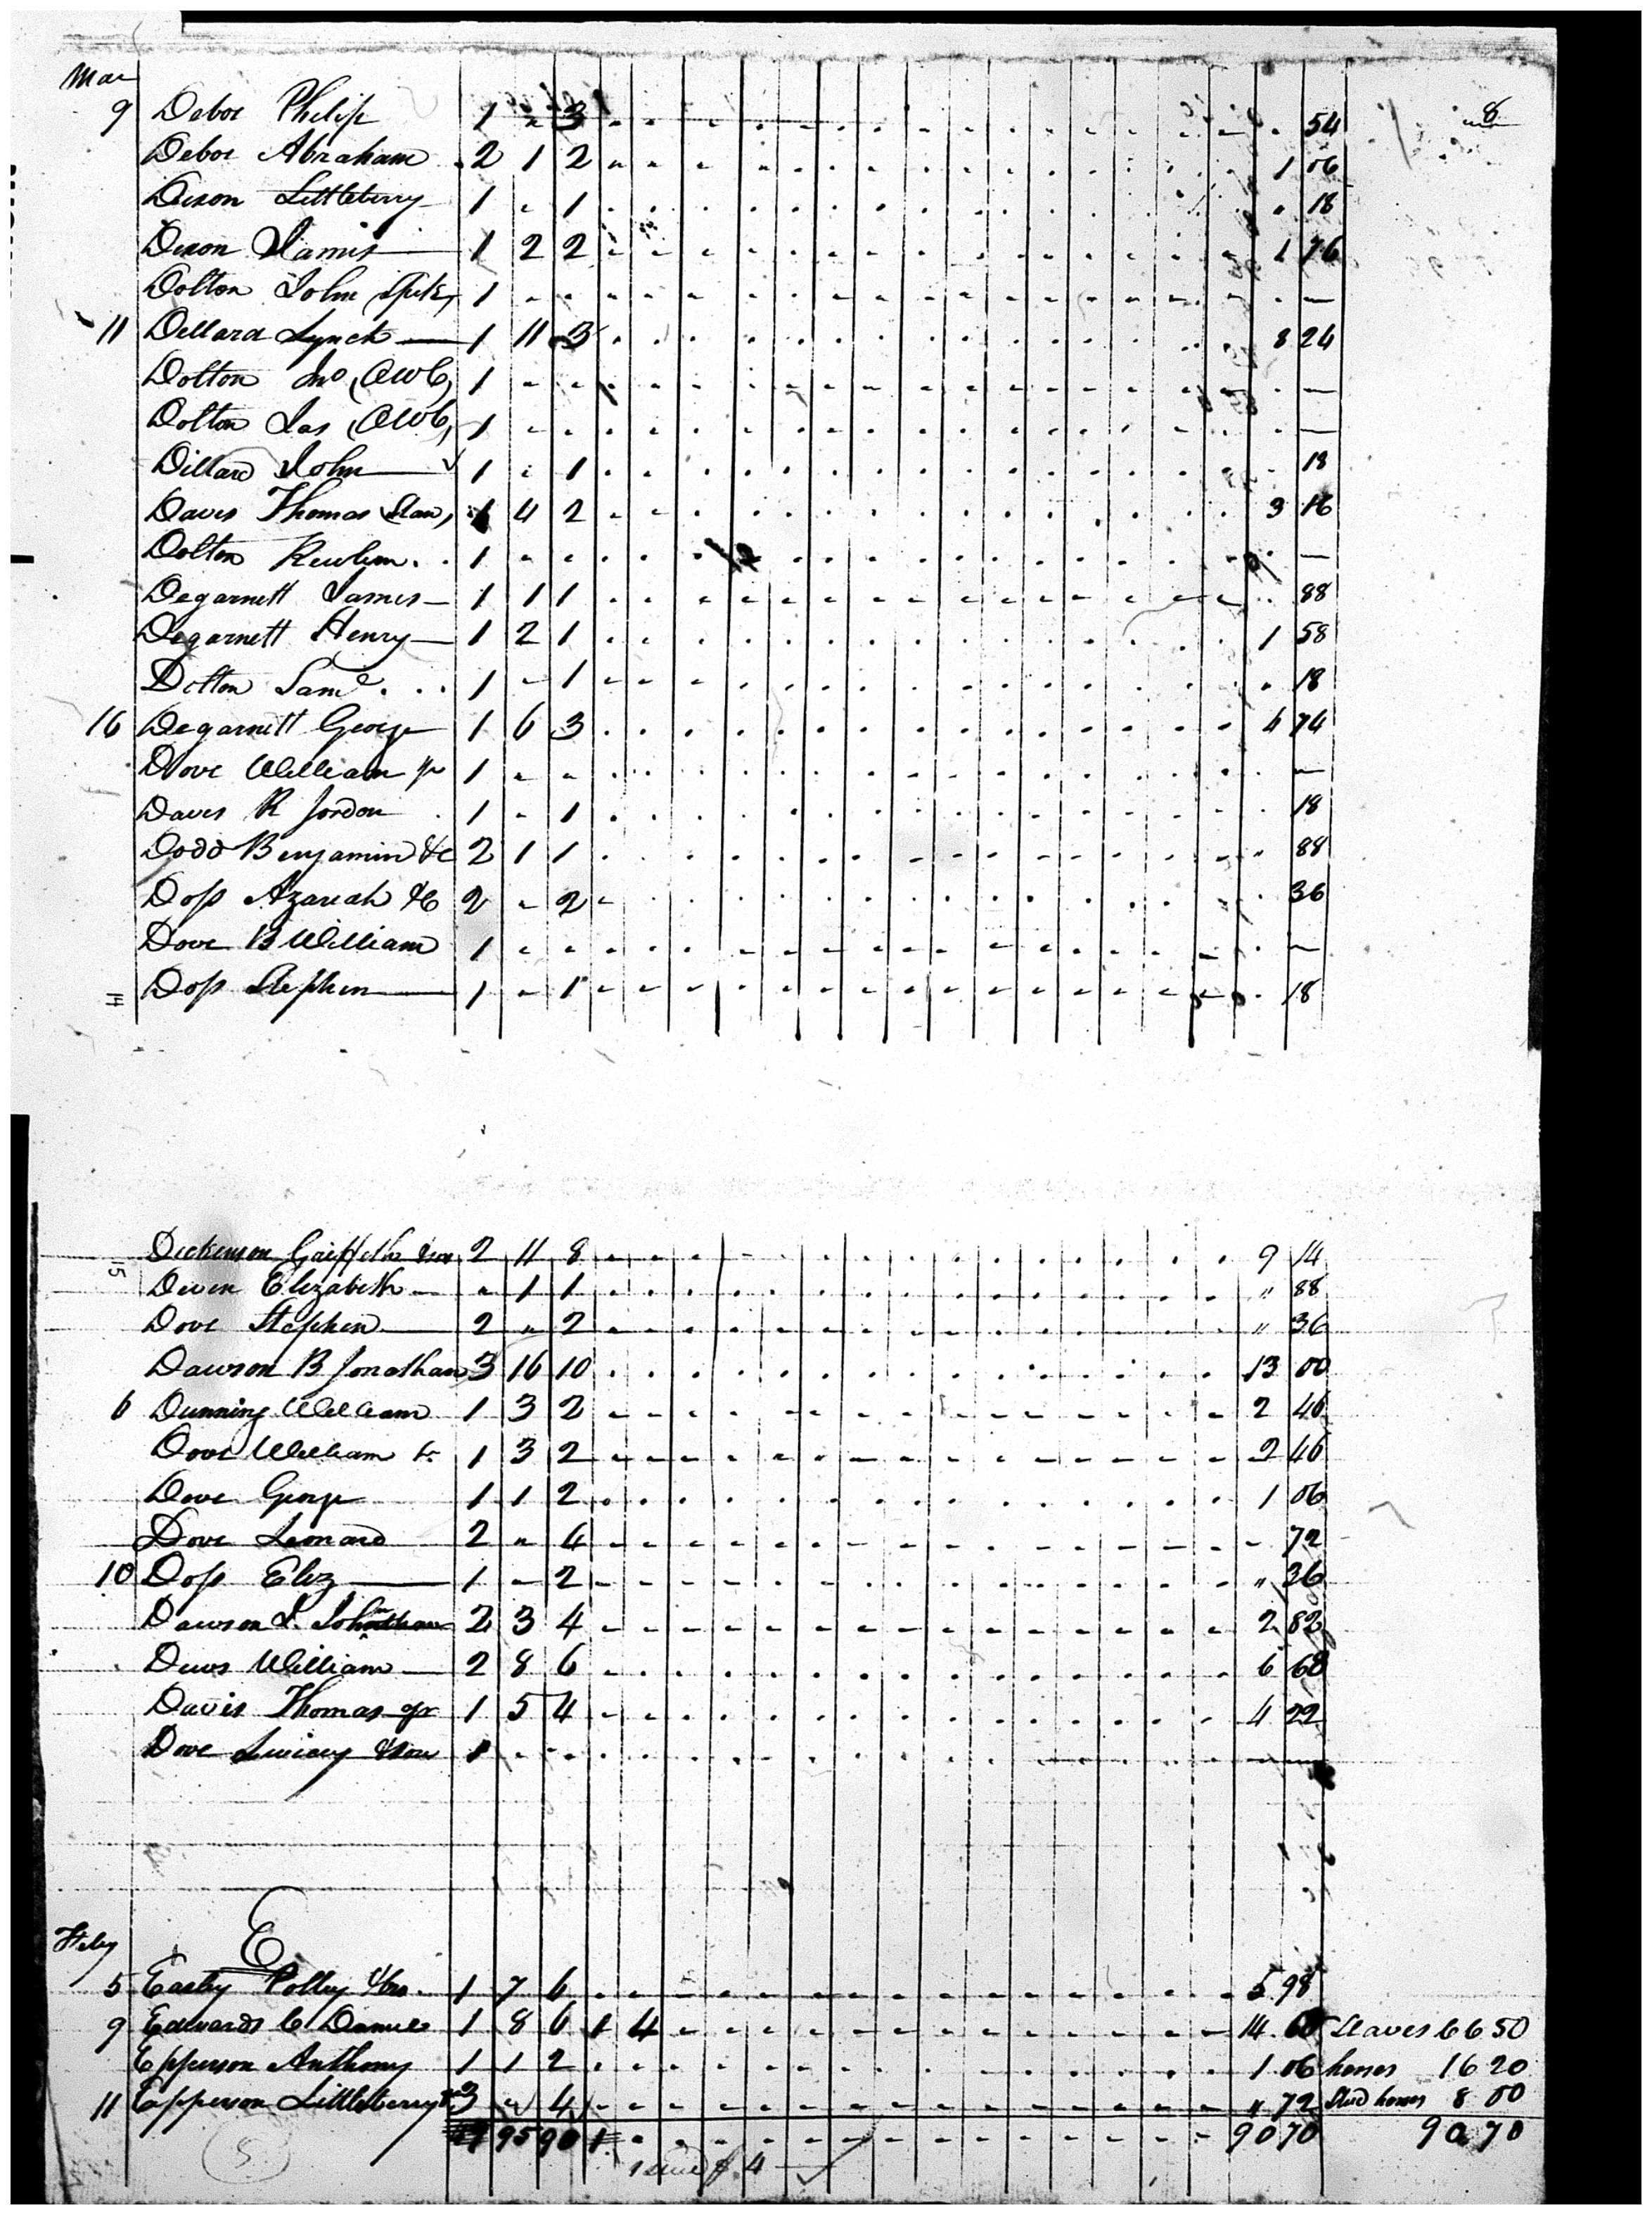 Mar
9 Deboe Philip 1 " 3 54 8
Deboe Abraham 2 1 2 1 06
Dixon Littleberry 1 - 1 18
Dixon James 1 2 2 1 76
Dolton John 1 - - —
11 Dillard Lynch 1 11 3 8 24
Dolton Jno (OWC) 1 - - —
Dolton Jas (OWC) 1 - - —
Dillard John 1 - 1 18
Davis Thomas 1 4 2 3 16
Dolton Reubin 1 - - —
Degarnett James 1 1 1 88
Degarnett Henry 1 2 1 1 58
Dolton Saml 1 - 1 18
16 Degarnett George 1 6 3 4 74
Dove William Jr 1 - - —
Daves R Jordon 1 - 1 18
Dodd Benjamin &c 2 1 1 88
Doss Azariah &c 2 - 2 36
Dove B William 1 - - —
14 Doss Stephen 1 - 1 18
15 Dickinson Griffeth &son 2 11 8 9 14
Elizabeth - 1 1 " 88
Dove Stephen 2 " 2 " 36
Dawson B Jonathan 3 16 10 13 00
6 Dunning William 1 3 2 2 46
Dove William Sr 1 3 2 2 46
Dove George 1 1 2 1 06
Dove Leonard 2 " 4 - 72
10 Doss Eliz 1 - 2 " 36
Dawson J. John 2 3 4 2 82
Dews William 2 8 6 6 68
Davis Thomas Jr 1 5 4 4 22
Dove &son 1 - - —
E
Feby
5 Easley Polley 1 7 6 5 98
9 Edwards C Daniel 1 8 6 1 4 14 68 Slaves 66 50
Epperson Anthony 1 1 2 1 06 horses 16 20
11 Epperson Littleberry 3 " 4 " 72 Stud horses 8 00
95 90 1 90 70 90 70
5 4